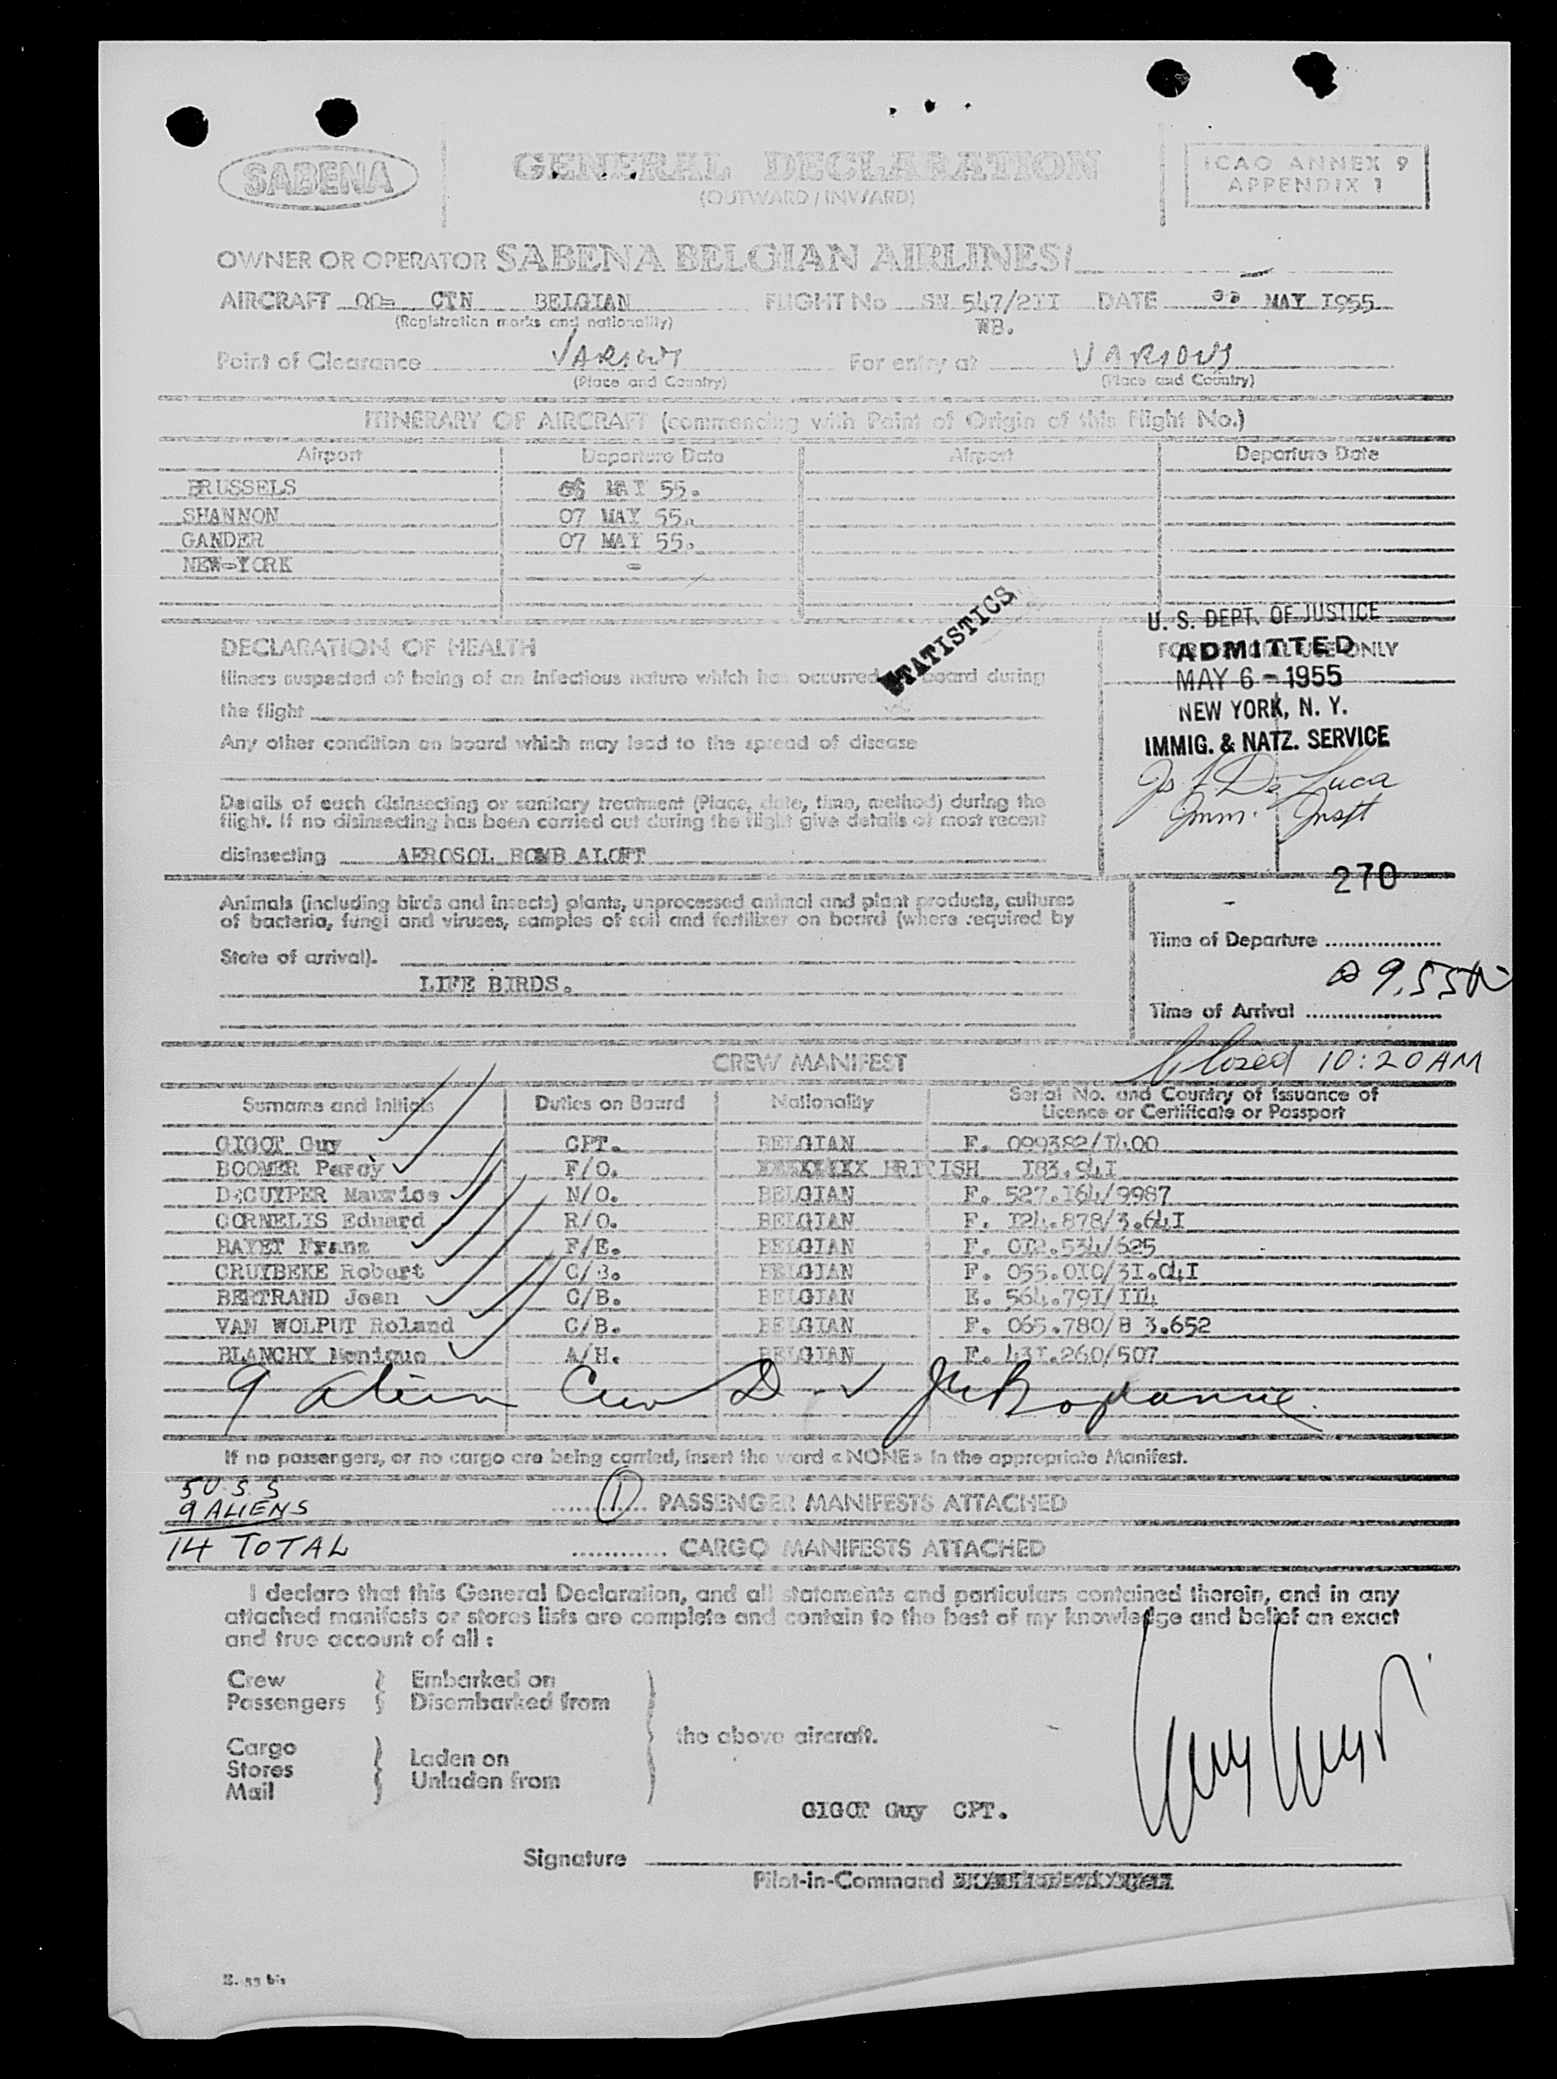 SABENA
GENERAL DECLARATION
(OUTWARD / INWARD)
ICAO ANNEX 9
APPENDIX 1
OWNER OR OPERATOR SABENA BELGIAN AIRLINES/
AIRCRAFT OO= CTN BELGIAN FLIGHT No SN 547/2II DATE MAY I955
(Registration marks and nationality) WB.
Point of Clearance VARIOUS For entry at VARIOUS
(Place and Country) (Place and Country)
ITINERARY OF AIRCRAFT (commencing with Point of Origin of this Flight No.)
Airport Departure Date Airport Departure Date
BRUSSELS MAY 55.
SHANNON 07 MAY 55.
GANDER 07 MAY 55.
NEW-YORK -
STATISTICS
U. S. DEPT. OF JUSTICE
FOR OFFICIAL USE ONLY
ADMITTED
MAY 6 - 1955
NEW YORK, N. Y.
IMMIG. & NATZ. SERVICE
Js. F. De Luca
Imm. Inspt
270
DECLARATION OF HEALTH
Illness suspected of being of an infectious nature which has occurred on board during
the flight
Any other condition on board which may lead to the spread of disease
Details of each disinsecting or sanitary treatment (Place, date, time, method) during the
flight. If no disinsecting has been carried out during the flight give details of most recent
disinsecting AEROSOL BOMB ALOFT
Animals (including birds and insects) plants, unprocessed animal and plant products, cultures
of bacteria, fungi and viruses, samples of soil and fertilizer on board (where required by
State of arrival).
LIFE BIRDS.
Time of Departure ...................
9.55
Time of Arrival ......................
Closed 10:20 AM
CREW MANIFEST
Surname and Initials Duties on Board Nationality Serial No. and Country of Issuance of
Licence or Certificate or Passport
GIGOT Guy CPT. BELGIAN F. 099382/I400
BOOMER Percy F/O. XXXXXXX BRITISH I83.94I
DECUYPER Maurice N/O. BELGIAN F. 527.I64/9987
CORNELIS Eduard R/O. BELGIAN F. I24.878/3.64I
BAYET Franz F/E. BELGIAN F. 0I2.534/625
CRUYBEKE Robert C/B. BELGIAN F. 055.0I0/3I.04I
BERTRAND Jean C/B. BELGIAN E. 564.79I/II4
VAN WOLPUT Roland C/B. BELGIAN F. 065.780/B 3.652
BLANCHY Monique A/H. BELGIAN F. 43I.260/507
9 alien Crew D
If no passengers, or no cargo are being carried, insert the word «NONE» in the appropriate Manifest.
5 U.S.S
9 ALIENS
14 TOTAL
............ 1 PASSENGER MANIFESTS ATTACHED
............ CARGO MANIFESTS ATTACHED
I declare that this General Declaration, and all statements and particulars contained therein, and in any
attached manifests or stores lists are complete and contain to the best of my knowledge and belief an exact
and true account of all :
Crew
Passengers
Embarked on
Disembarked from
the above aircraft.
Cargo
Stores
Mail
Laden on
Unladen from
GIGOT Guy CPT.
Signature
Pilot-in-Command
E. 53 bis